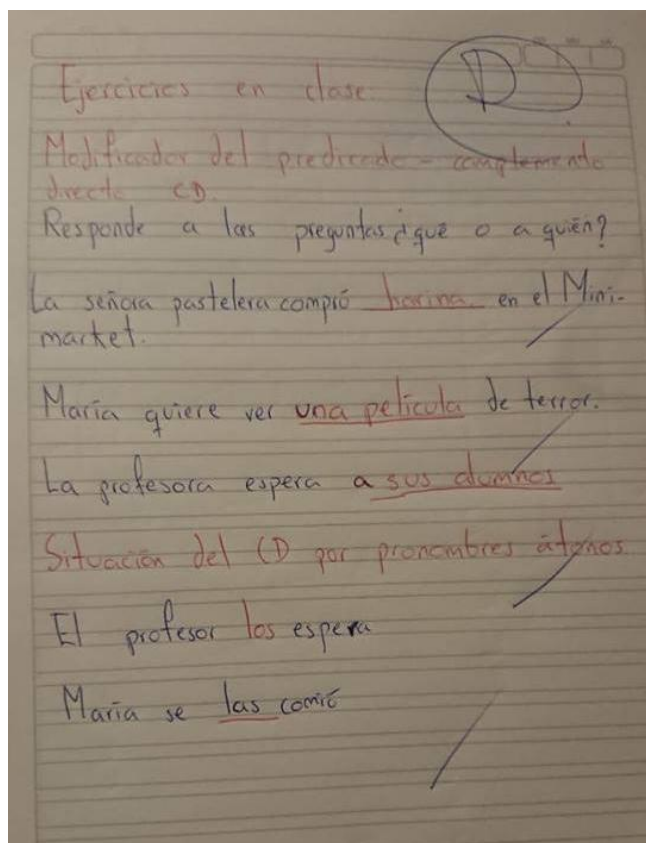 Ejercicios en clase.
Modificador del predicado - complemento
directo CD.
Responde a las preguntas ¿qué o a quién?
La señora pastelera compró harina en el Mini-
market.
María quiere ver una película de terror.
La profesora espera a sus alumnos
Situación del CD por pronombres átonos
El profesor los espera
María se las comió